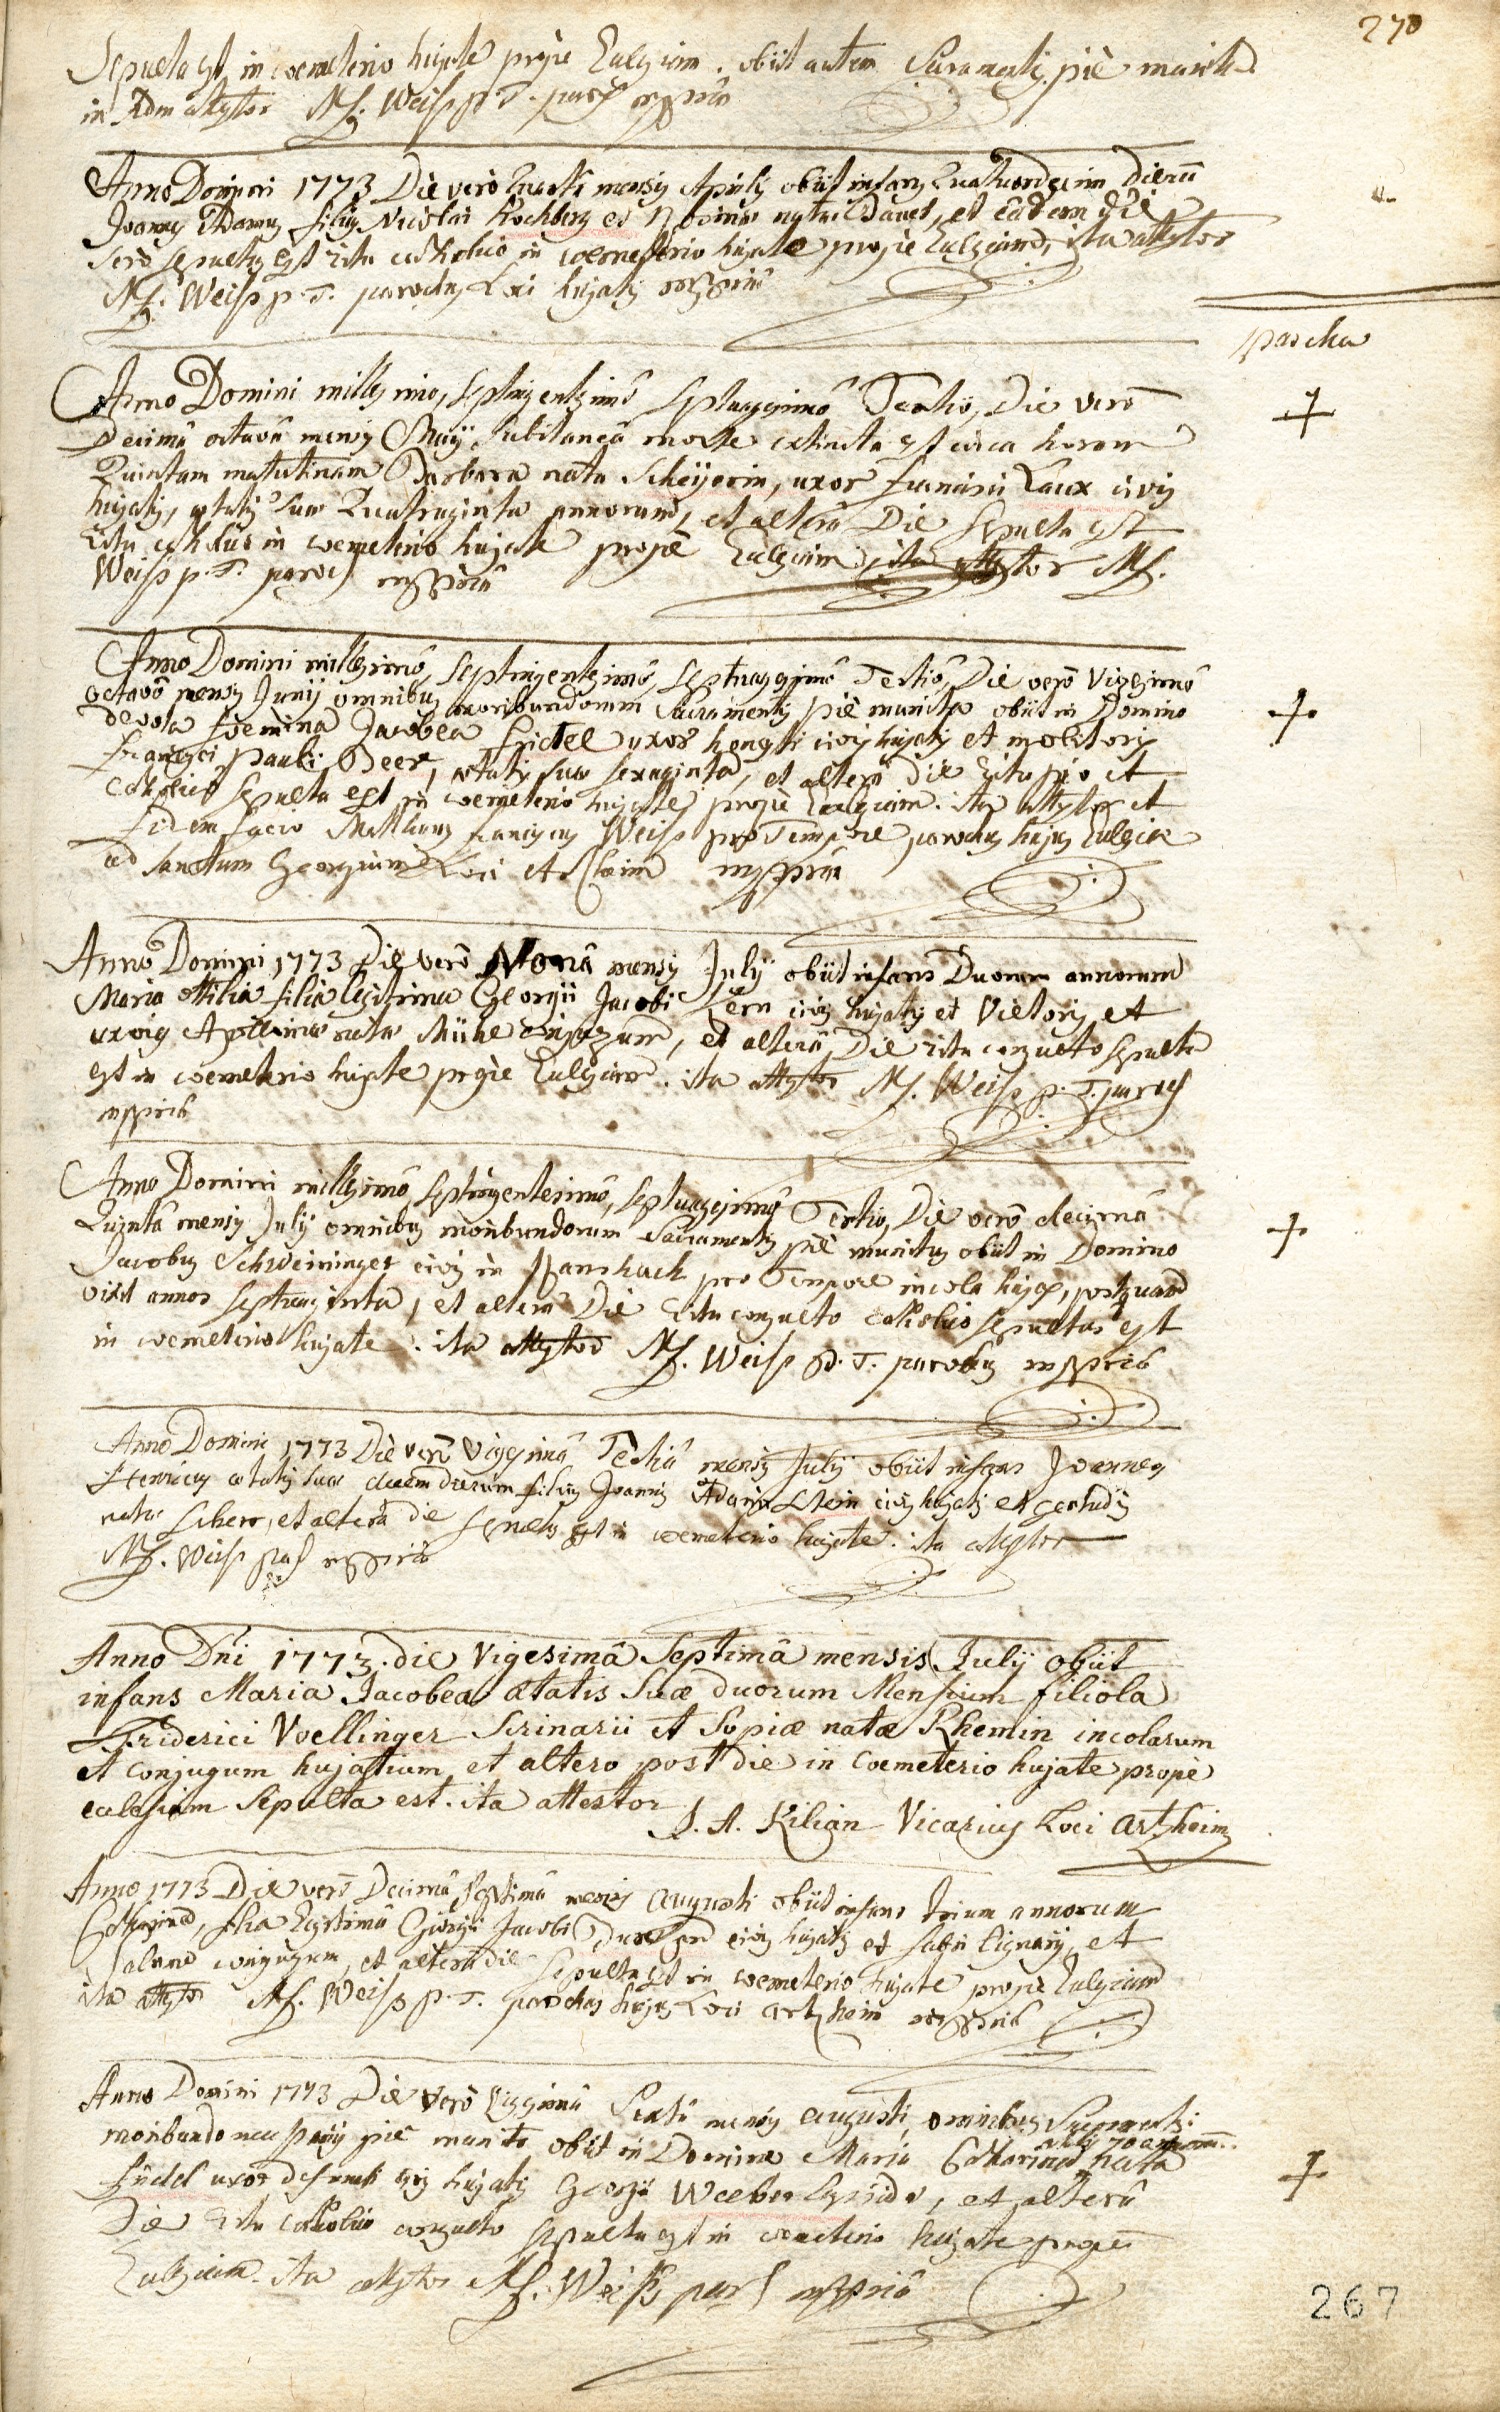 270
Sepulta est in coemeterio hujate prope Ecclesiam. obiit autem Sacramentis piè munita
in Domino attestor Mf. Weiss p. T. parochus mppria
Anno Domini 1773 Die verò mensis Aprilis obiit infans Quatuordecim dierum
Joannes Adamus filius Nicolai Kochberg et natae Daues, et eâdem die
serò sepultus est ritu catholico in coemeterio hujate prope Ecclesiam, ita attestor
Mf. Weiss p. T. parochus Loci hujatis mppria
pascha
Anno Domini millesimo, septingentesimô septuagesimô Tertio, Die verò
Decimâ octavâ mensis Maÿ subitaneâ morte extincta est circa horam
Quintam matutinam Barbara nata Scheÿerin, uxor Francisci Laux civis
hujatis, aetatis suae Quadraginta annorum, et alterâ Die sepulta est
ritu catholico in coemeterio hujate propè Ecclesiam, ita attestor Mf.
Weiss p. T. paroch mppria
Anno Domini millesimô, septingentesimô, septuagesimô Tertiô, Die verò vigesimô
octavô mensis Junÿ omnibus moribundorum Sacramentis piè munita obiit in Domino
devota foemina Jacobea Frictel uxor honesti civis hujatis et molitoris
Francisci Pauli Beer, aetatis suae sexaginta, et alterô die ritu pio et
catholico sepulta est in coemeterio hujate propè Ecclesiam. ita attestor et
fidem facio Matthaeus Franciscus Weiss pro Tempore parochus hujus Ecclesiae
ad Sanctum Georgium Loci Arzheim mppria
Anno Domini 1773 Die verò Nonâ mensis Julÿ obiit infans Duorum annorum
Maria Ottilia filia legitima Georgii Jacobi Kern civis hujatis et Vietoris et
uxoris Apolloniae natae Mühe conjugum, et alterâ Die ritu consueto sepulta
est in coemeterio hujate propè Ecclesiam. ita attestor Mf. Weiss p. T. paroch
mppria
Anno Domini millesimô, septingentesimô, septuagesimô Tertio, Die verò decimâ
Quintâ mensis Julÿ omnibus moribundorum Sacramentis piè munitus obiit in Domino
Jacobus Schweininger civis in Ranshach pro Tempore incola hujas, postquam
vixit annos septuaginta, et alterâ Die ritu consueto catholico sepultus est
in coemeterio hujate. ita attestor Mf. Weiss p. T. parochus mppria
Anno Domini 1773 Die verò vigesimâ Tertiâ mensis Julÿ obiit infans Joannes
Henricus aetatis suae decem dierum filius Joannis Adami Stein civis hujatis et Gertrudis
natae Scherr, et alterâ die sepultus est in coemeterio hujate. ita attestor
Mf. Weiss par mppria
Anno Dni 1773. die Vigesimâ Septimâ mensis Julÿ obiit
infans Maria Jacobea aetatis Suae duorum Mensium filiola
Friderici Voellinger Scrinarii et Sopiae natae Rhemin incolarum
et Conjugum hujatium, et altero post die in Coemeterio hujate propè
ecclesiam Sepulta est. ita attestor
J. A. Kilian Vicarius Loci Artzheim
Anno 1773 Die verò Decimâ Septimâ mensis Augusti obiit infans trium annorum
Catharina, filia legitima Georgii Jacobi civis hujatis et fabri lignarÿ, et
conjugum, et alterâ die sepulta est in coemeterio hujate propè Ecclesiam
ita attestor Mf. Weiss p. T. parochus hujus Loci Artzheim mppria
Anno Domini 1773 Die verò vigesimâ Sextâ mensis Augusti, omnibus Sacramentis
moribundorum piè munita obiit in Domino Maria Catharina nata
aetatis 70 annorum
Füdel uxor defuncti civis hujatis Georgii Weeber, et alterâ
Die ritu catholico consueto sepulta est in coemeterio hujate propè
Ecclesiam. ita attestor Mf. Weiss par mppriâ
267